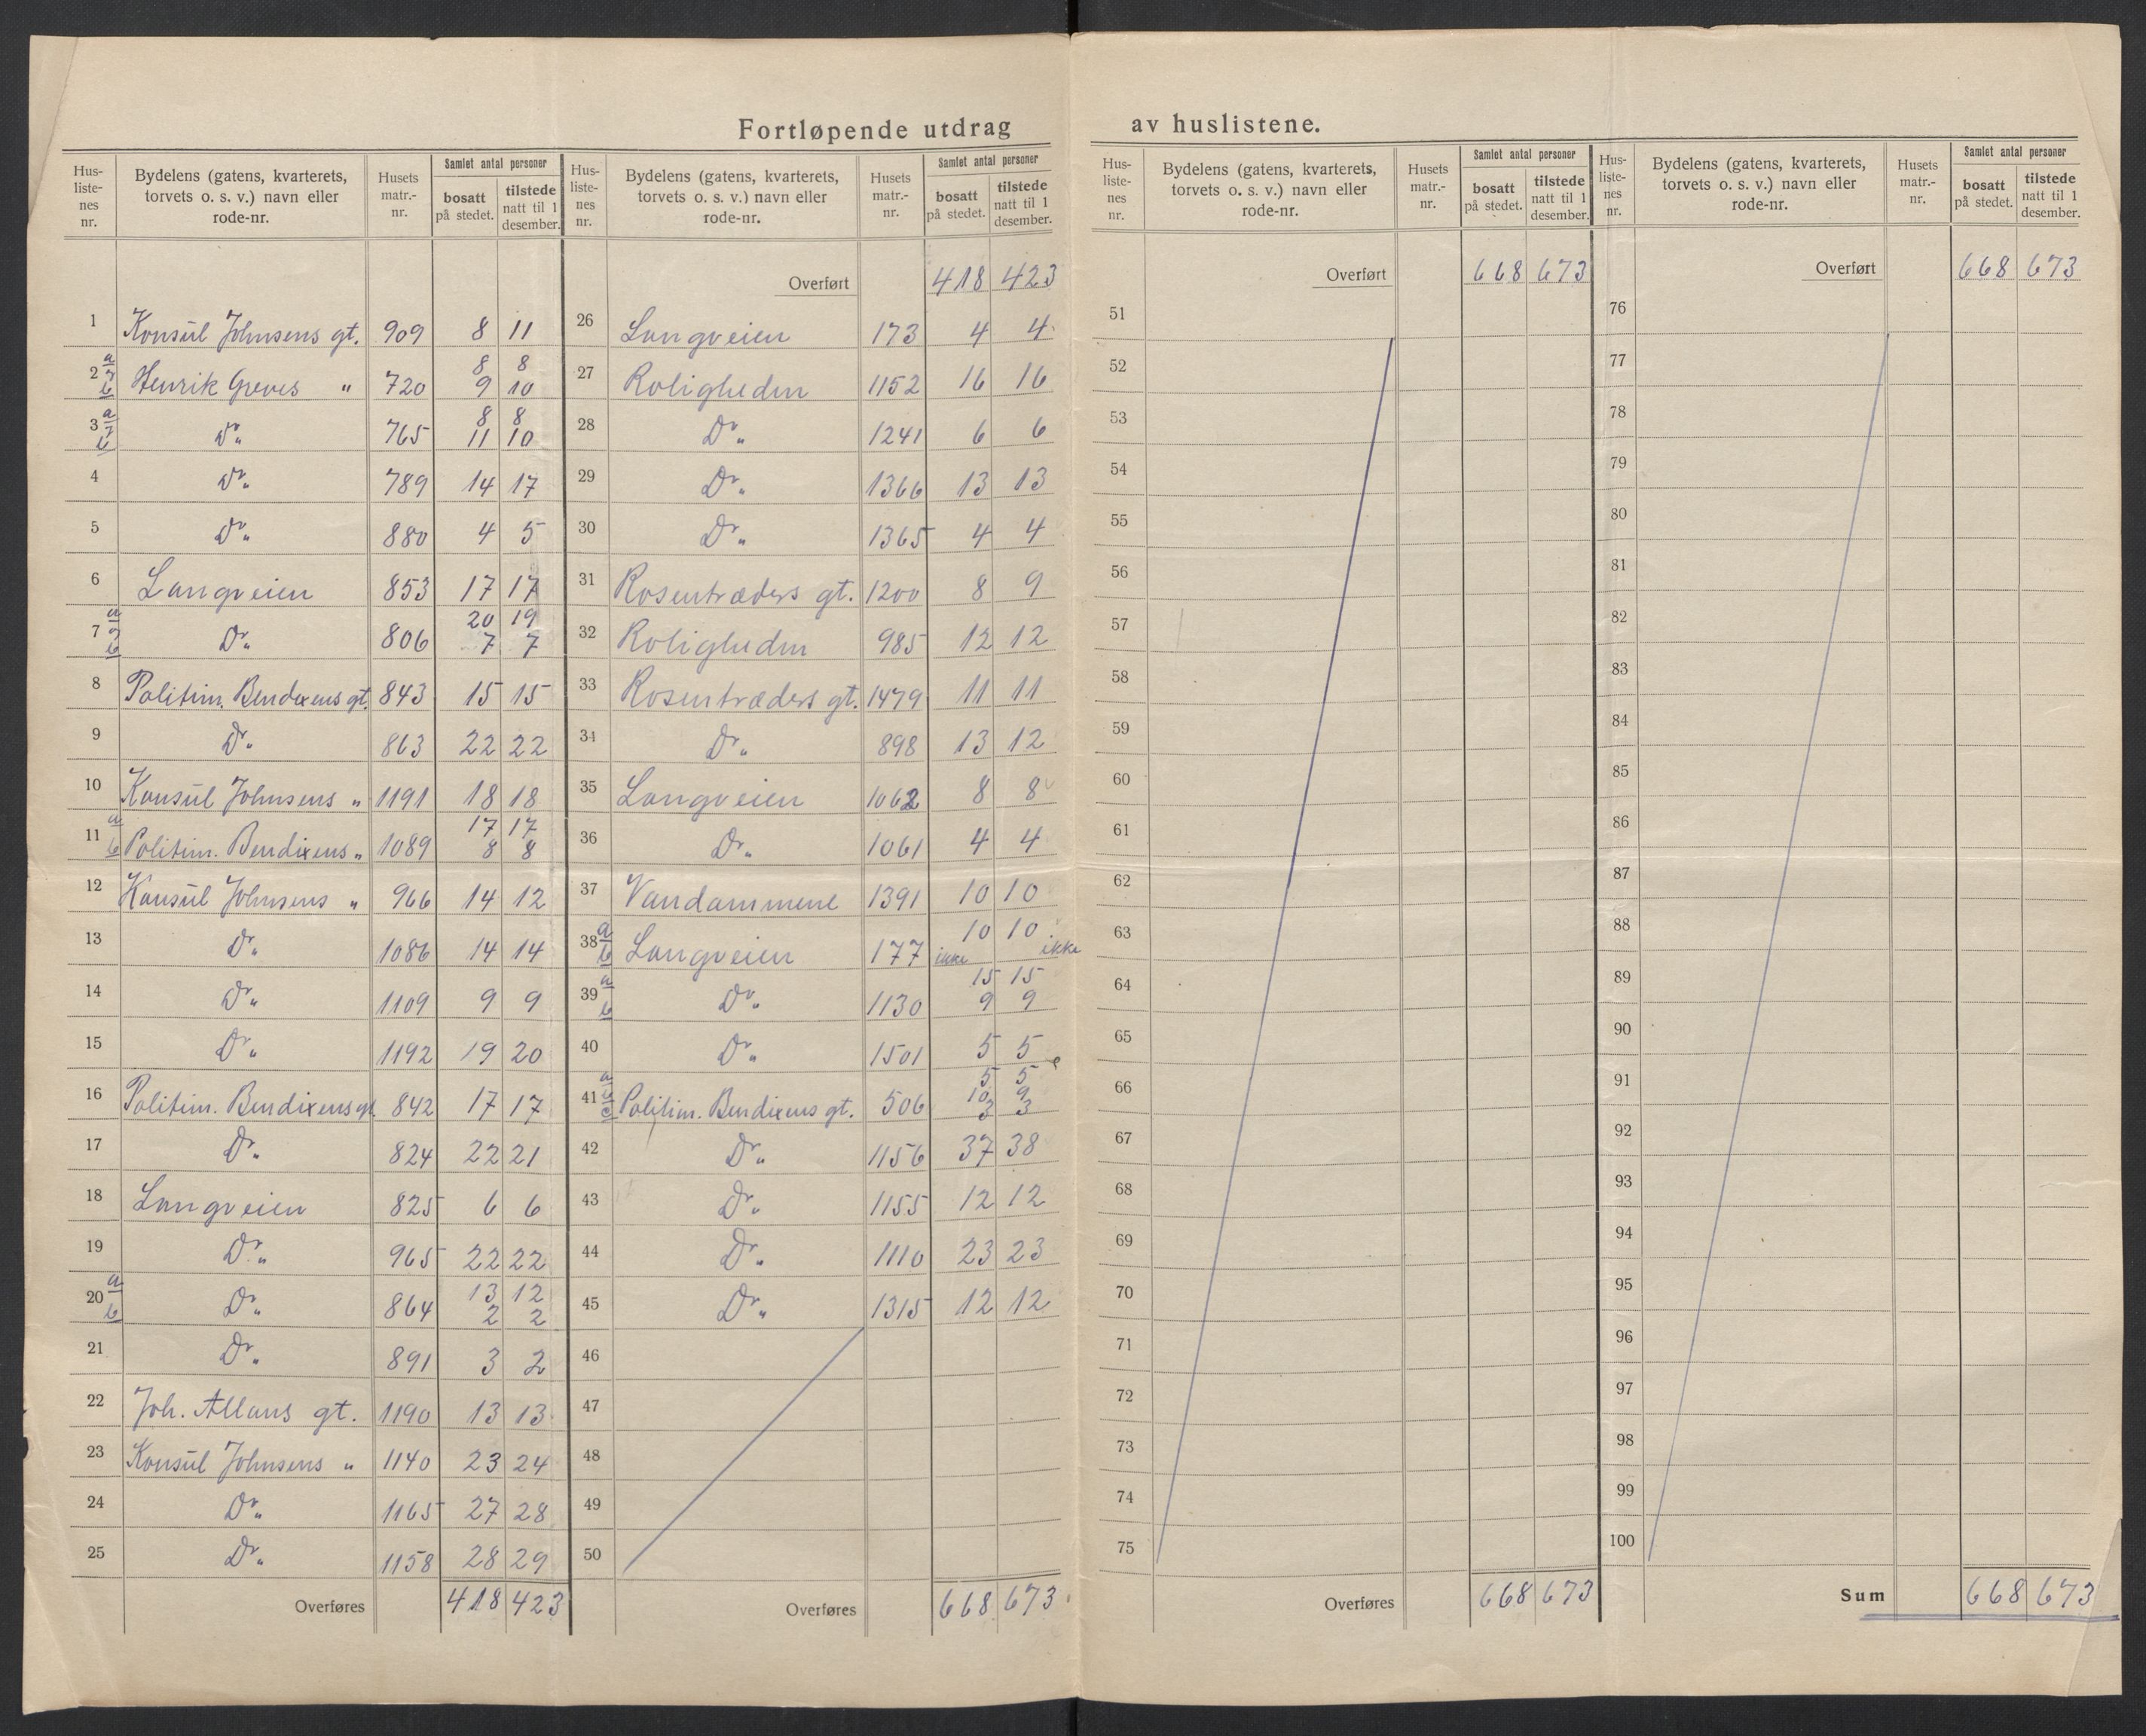 Fortløpende utdrag av huslistene.
Hus-liste-nes nr. | Bydelens (gatens, kvarterets, torvets o. s. v.) navn eller rode-nr. | Husets matr.-nr. | Samlet antal personer | bosatt på stedet. | tilstede natt til 1 desember.
1 Konsül Johnsens gt. 909 8 11
2 a b Henrik Greves " 720 8 8 9 10
3 a b Do " 765 8 8 11 10
4 Do " 789 14 17
5 Do " 880 4 5
6 Langveien 853 17 17
7 a b Do " 806 20 19 7 7
8 Politim. Bendixens gt. 843 15 15
9 Do " 863 22 22
10 Konsül Johnsens " 1191 18 18
11 a b Politim. Bendixens " 1089 17 17 8 8
12 Konsül Johnsens " 966 14 12
13 Do " 1086 14 14
14 Do " 1109 9 9
15 Do " 1192 19 20
16 Politim. Bendixens gt. 842 17 17
17 Do " 824 22 21
18 Langveien 825 6 6
19 Do " 965 22 22
20 a b Do " 864 13 12 2 2
21 Do " 891 3 2
22 Joh. Allans gt. 1190 13 13
23 Konsül Johnsens " 1140 23 24
24 Do " 1165 27 28
25 Do " 1158 28 29
Overføres 418 423
Hus-liste-nes nr. | Bydelens (gatens, kvarterets, torvets o. s. v.) navn eller rode-nr. | Husets matr.-nr. | Samlet antal personer | bosatt på stedet. | tilstede natt til 1 desember.
Overført 418 423
26 Langveien 173 4 4
27 Roligheden 1152 16 16
28 Do " 1241 6 6
29 Do " 1366 13 13
30 Do " 1365 4 4
31 Rosentræders gt. 1200 8 9
32 Roligheden 985 12 12
33 Rosentræders gt. 1479 11 11
34 Do " 898 13 12
35 Langveien 1062 8 8
36 Do " 1061 4 4
37 Vandammene 1391 10 10
38 a b Langveien 177 10 10 ikke ikke
39 a b Do " 1130 15 15 9 9
40 Do " 1501 5 5
41 a b c Politim. Bendixens gt. 506 5 5 10 9 3 3
42 Do " 1156 37 38
43 Do " 1155 12 12
44 Do " 1110 23 23
45 Do " 1315 12 12
46
47
48
49
50
Overføres 668 673
Hus-liste-nes nr. | Bydelens (gatens, kvarterets, torvets o. s. v.) navn eller rode-nr. | Husets matr.-nr. | Samlet antal personer | bosatt på stedet. | tilstede natt til 1 desember.
Overført 668 673
51
52
53
54
55
56
57
58
59
60
61
62
63
64
65
66
67
68
69
70
71
72
73
74
75
Overføres 668 673
Hus-liste-nes nr. | Bydelens (gatens, kvarterets, torvets o. s. v.) navn eller rode-nr. | Husets matr.-nr. | Samlet antal personer | bosatt på stedet. | tilstede natt til 1 desember.
Overført 668 673
76
77
78
79
80
81
82
83
84
85
86
87
88
89
90
91
92
93
94
95
96
97
98
99
100
Sum 668 673